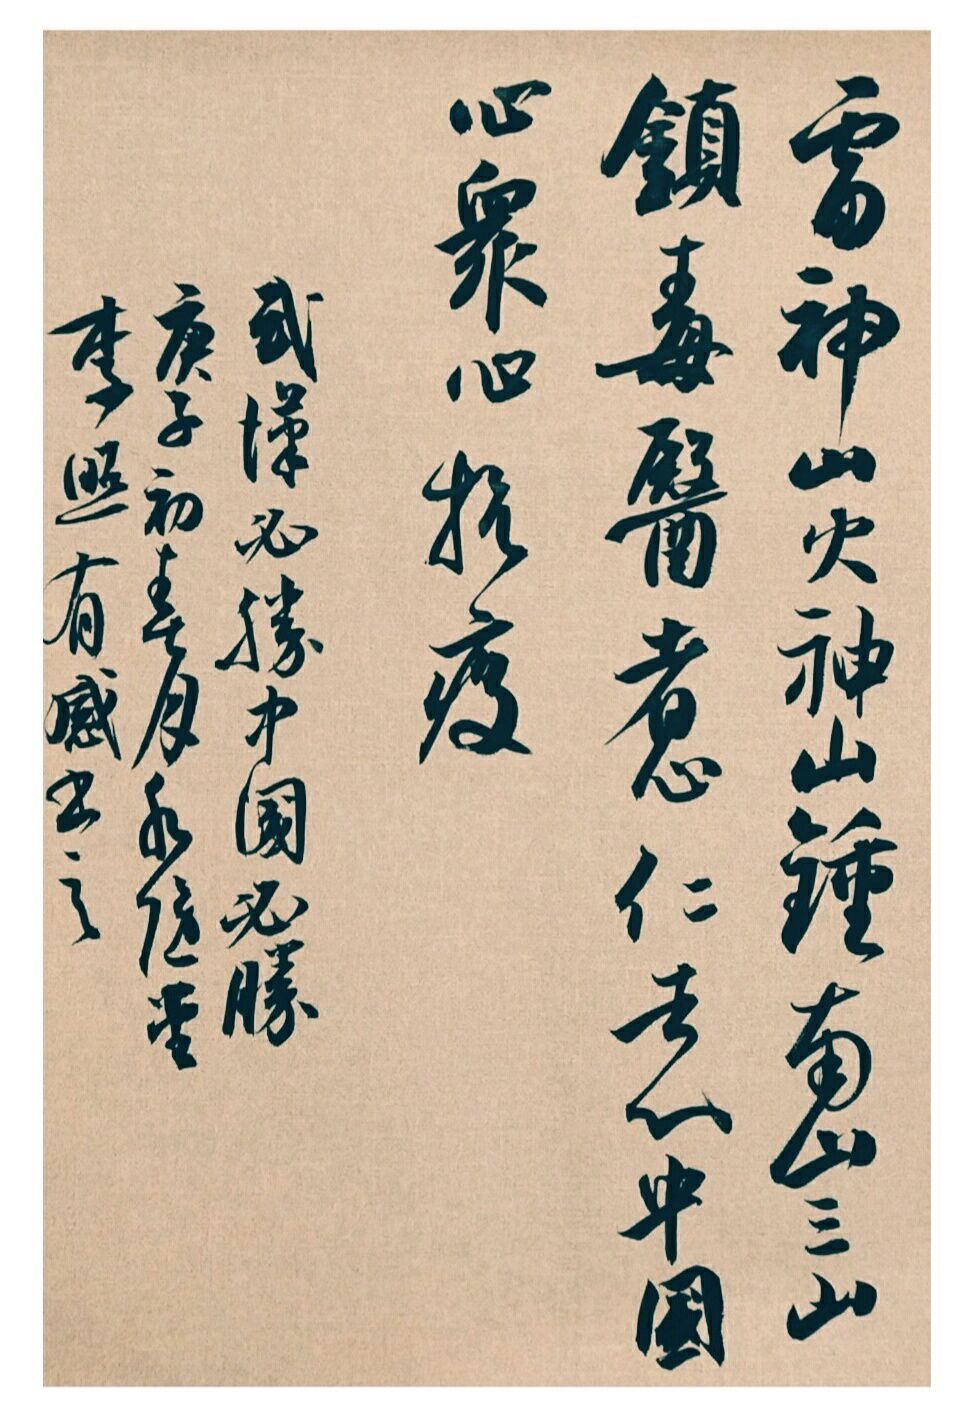 雷神山火神山鍾南山三山
鎮毒醫者心仁者心中國
心眾心抗疫
武漢必勝中國必勝
庚子初春月永隱堂
李照有感书之